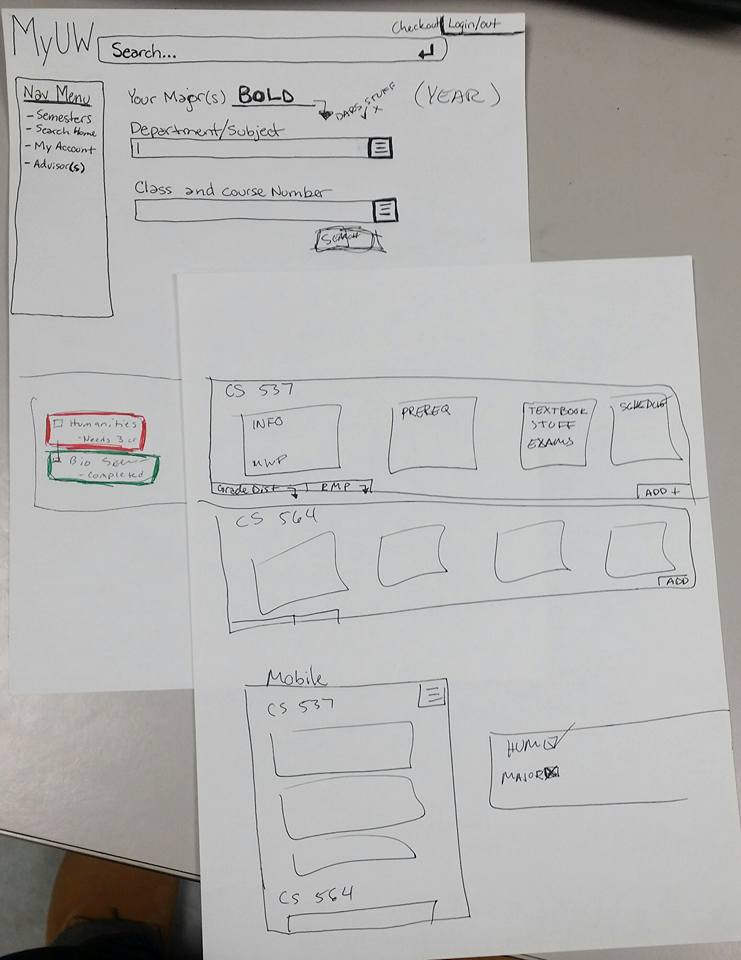 MyUW
Checkout Login/out
Search...
Nav Menu
- Semesters
- Search Home
- My Account
- Advisor(s)
Your Major(s) BOLD
DARS STUFF
(YEAR)
Department/Subject
Class and course Number
SEARCH
Humanities
- Needs 3 cr
Bio
- Completed
CS 537
INFO
MWF
PREREQ
TEXTBOOK
STUFF
EXAMS
SCHEDULE
Grade Dist
RMP
ADD +
CS 564
ADD
Mobile
CS 537
CS 564
HUM
MAJOR